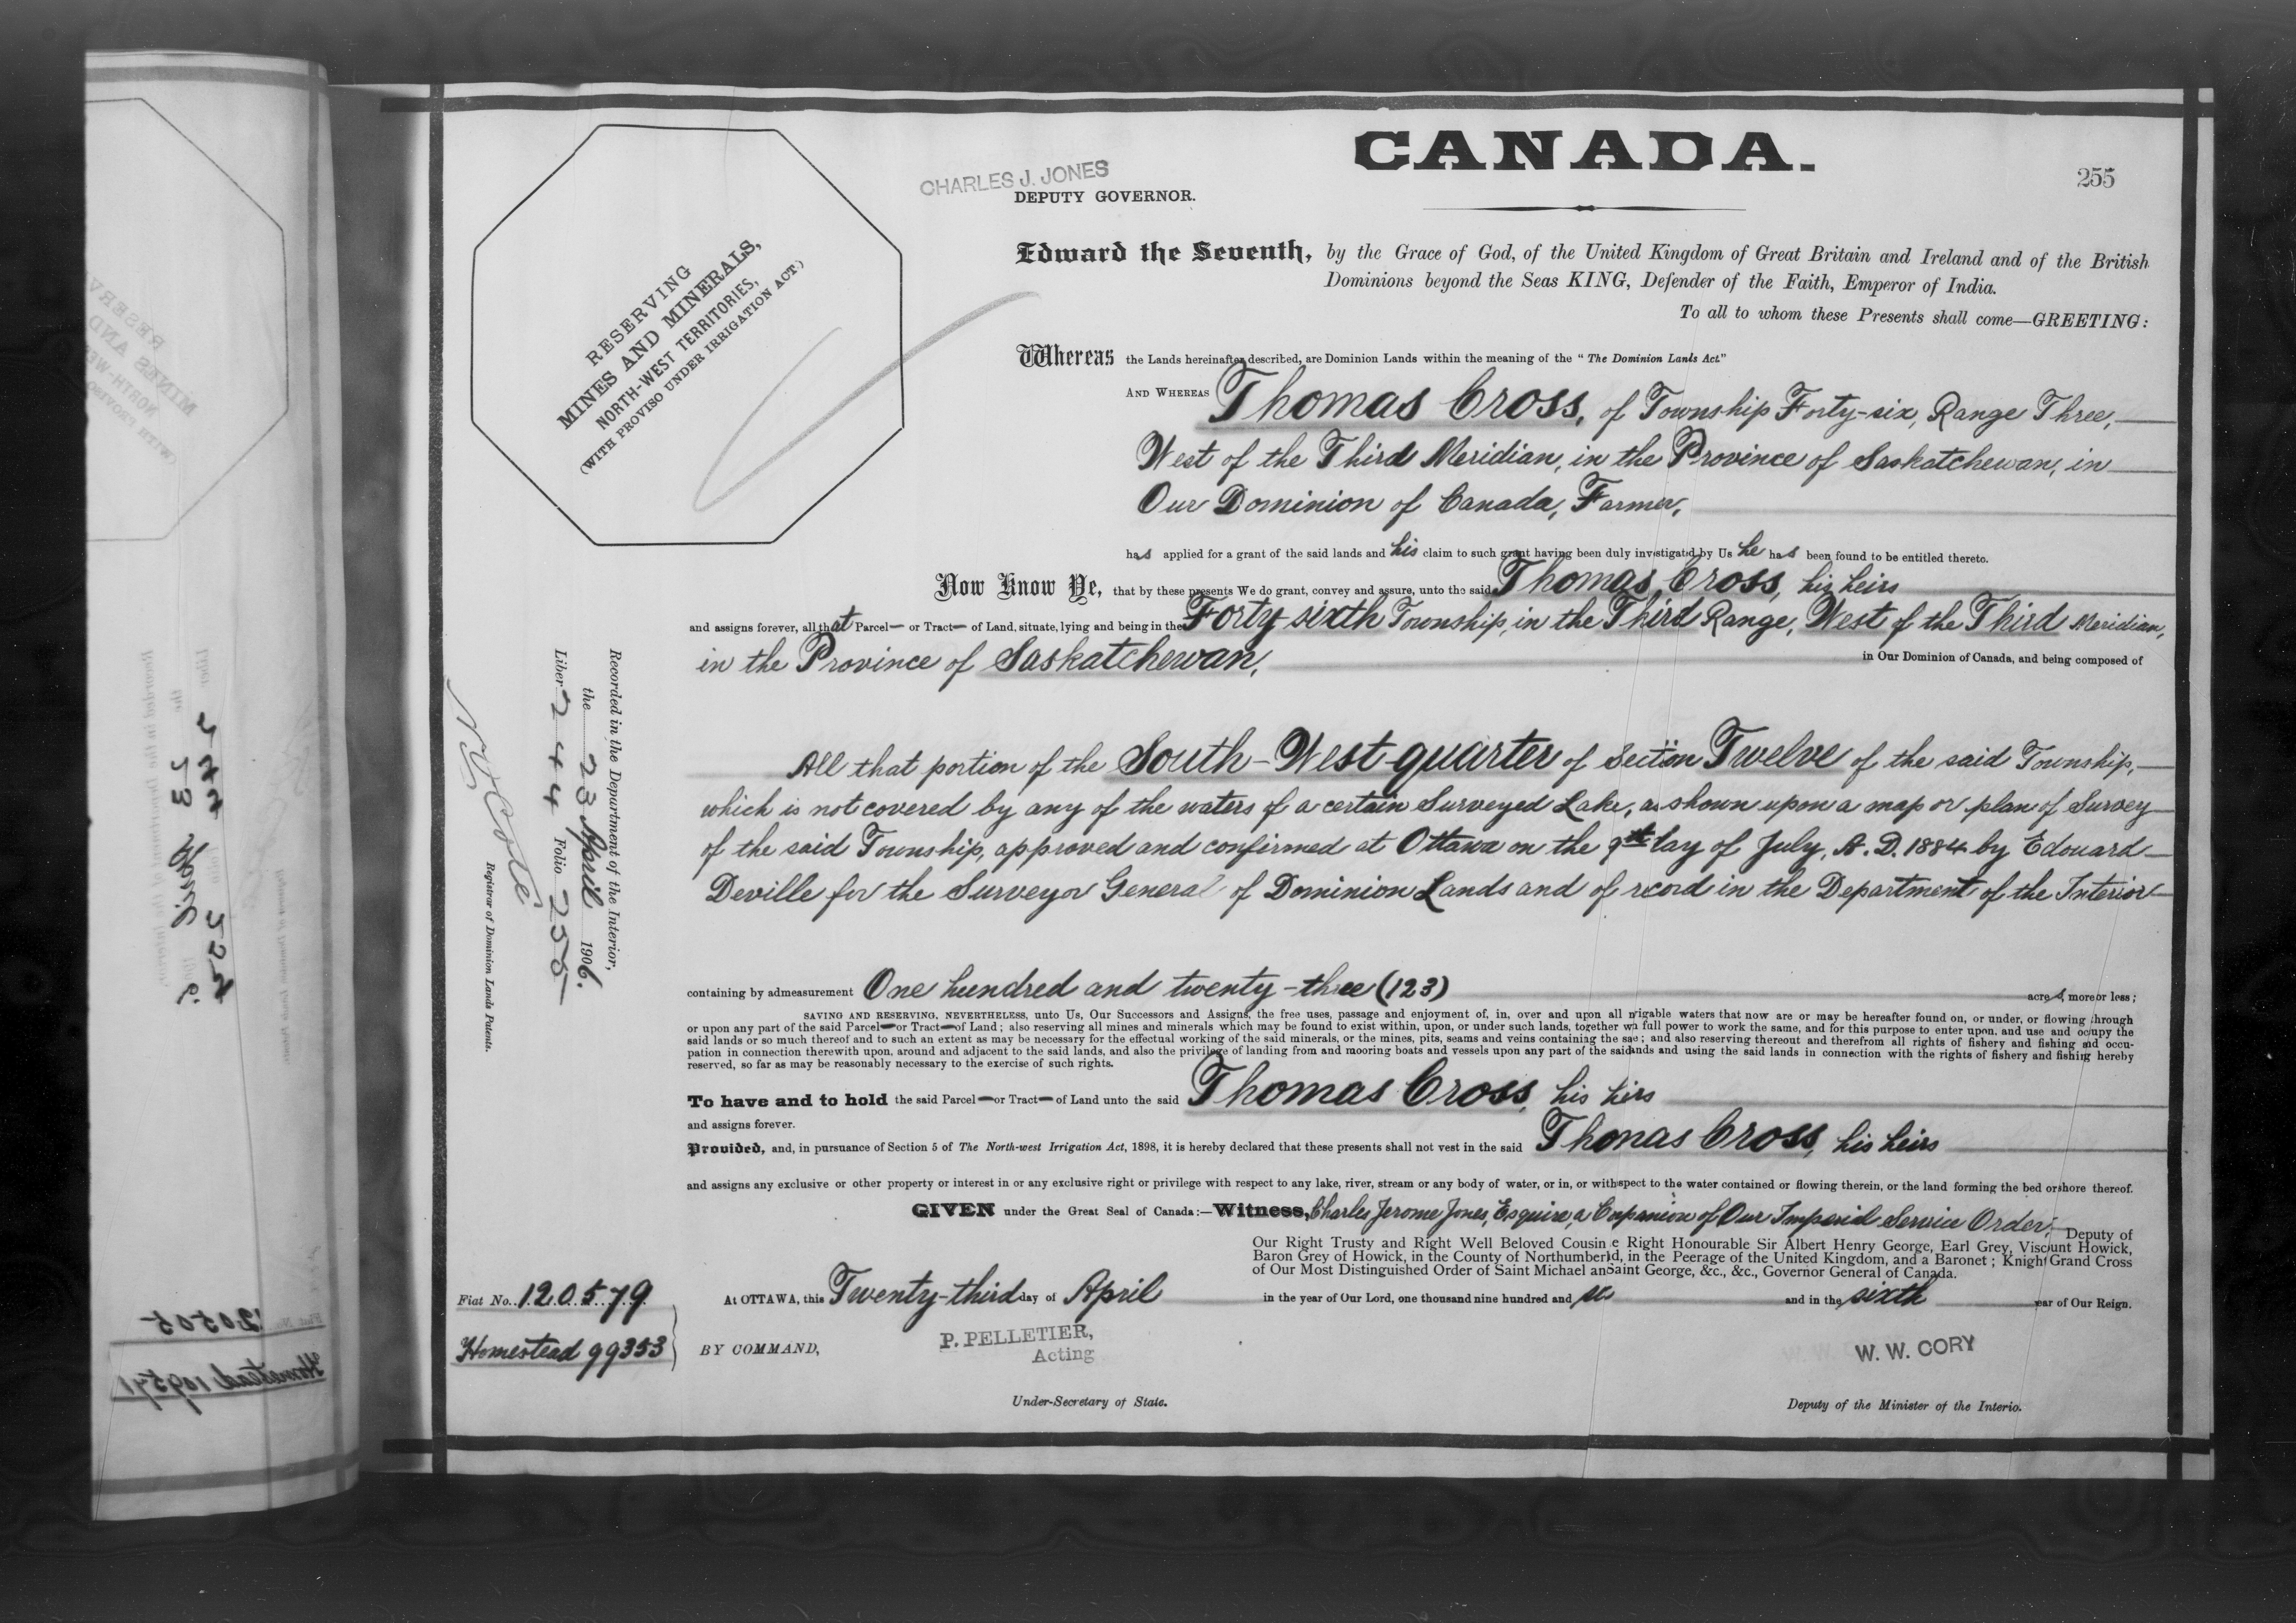 CANADA.
255
CHARLES J. JONES
DEPUTY GOVERNOR.
RESERVING
MINES AND MINERALS,
NORTH-WEST TERRITORIES,
(WITH PROVISO UNDER IRRIGATION ACT.)
Edward the Seventh, by the Grace of God, of the United Kingdom of Great Britain and Ireland and of the British
Dominions beyond the Seas KING, Defender of the Faith, Emperor of India.
To all to whom these Presents shall come—GREETING:
Whereas the Lands hereinafter described, are Dominion Lands within the meaning of the "The Dominion Lands Act."
AND WHEREAS Thomas Cross, of Township Forty-six, Range Three,
West of the Third Meridian, in the Province of Saskatchewan, in
Our Dominion of Canada, Farmer,
has applied for a grant of the said lands and his claim to such grant having been duly investigated by Us he has been found to be entitled thereto.
Now Know Ye, that by these presents We do grant, convey and assure, unto the said Thomas Cross, his heirs
and assigns forever, all that Parcel— or Tract— of Land, situate, lying and being in the Forty sixth Township, in the Third Range, West of the Third Meridian,
in the Province of Saskatchewan, in Our Dominion of Canada, and being composed of
All that portion of the South-West quarter of Section Twelve of the said Township,
which is not covered by any of the waters of a certain Surveyed Lake, as shown upon a map or plan of Survey
of the said Township, approved and confirmed at Ottawa on the 9th day of July, A.D. 1884 by Edouard
Deville for the Surveyor General of Dominion Lands and of record in the Department of the Interior
containing by admeasurement One hundred and twenty-three (123) acres, more or less;
SAVING AND RESERVING, NEVERTHELESS, unto Us, Our Successors and Assigns, the free uses, passage and enjoyment of, in, over and upon all n'rigable waters that now are or may be hereafter found on, or under, or flowing through
or upon any part of the said Parcel—or Tract—of Land; also reserving all mines and minerals which may be found to exist within, upon, or under such lands, together w'h full power to work the same, and for this purpose to enter upon, and use and occupy the
said lands or so much thereof and to such an extent as may be necessary for the effectual working of the said minerals, or the mines, pits, seams and veins containing the sae; and also reserving thereout and therefrom all rights of fishery and fishing and occu-
pation in connection therewith upon, around and adjacent to the said lands, and also the privilege of landing from and mooring boats and vessels upon any part of the said lands and using the said lands in connection with the rights of fishery and fishing hereby
reserved, so far as may be reasonably necessary to the exercise of such rights.
To have and to hold the said Parcel—or Tract— of Land unto the said Thomas Cross, his heirs
and assigns forever.
Provided, and, in pursuance of Section 5 of The North-west Irrigation Act, 1898, it is hereby declared that these presents shall not vest in the said Thomas Cross, his heirs
and assigns any exclusive or other property or interest in or any exclusive right or privilege with respect to any lake, river, stream or any body of water, or in, or with respect to the water contained or flowing therein, or the land forming the bed or shore thereof.
GIVEN under the Great Seal of Canada:—Witness, Charles Jerome Jones, Esquire, a Companion of Our Imperial Service Order, Deputy of
Our Right Trusty and Right Well Beloved Cousin e Right Honourable Sir Albert Henry George, Earl Grey, Viscount Howick,
Baron Grey of Howick, in the County of Northumberld, in the Peerage of the United Kingdom, and a Baronet; Knight Grand Cross
of Our Most Distinguished Order of Saint Michael an Saint George, &c., &c., Governor General of Canada.
At OTTAWA, this Twenty-third day of April in the year of Our Lord, one thousand nine hundred and six and in the sixth year of Our Reign.
BY COMMAND,
P. PELLETIER,
Acting
Under-Secretary of State.
W. W. CORY
Deputy of the Minister of the Interio.
Fiat No. 120579
Homestead 99353
Recorded in the Department of the Interior,
the 23 April 1906.
Liber 244 Folio 255
N.O. Coté
Registrar of Dominion Lands Patents.
Fiat No. 120505
Homestead 109571